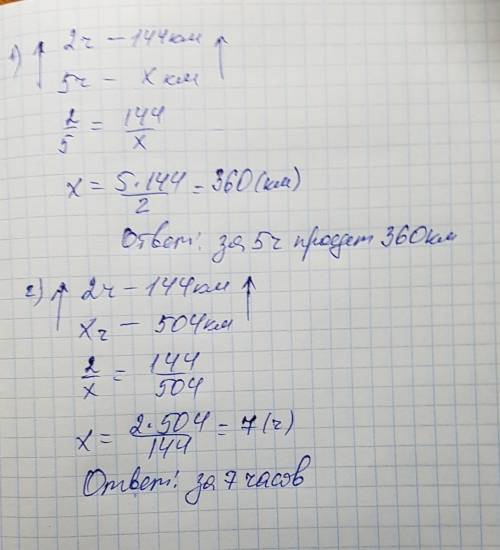 1) ↑ 2ч – 144км ↑
5ч – x км
2/5 = 144/x
x = 5·144/2 = 360 (км)
Ответ: за 5ч проедет 360км
2) ↑ 2ч – 144км ↑
xч – 504км
2/x = 144/504
x = 2·504/144 = 7 (ч)
Ответ: за 7 часов